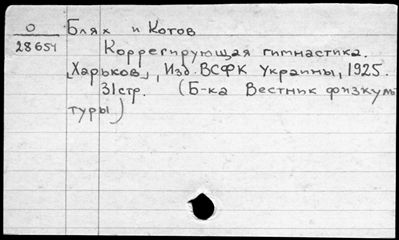 О
28654
Блях и Котов
Коррегирующая гимнастика.
[Харьков], Изд. ВСФК Украины, 1925.
31стр. (Б-ка Вестник физкуль
туры)